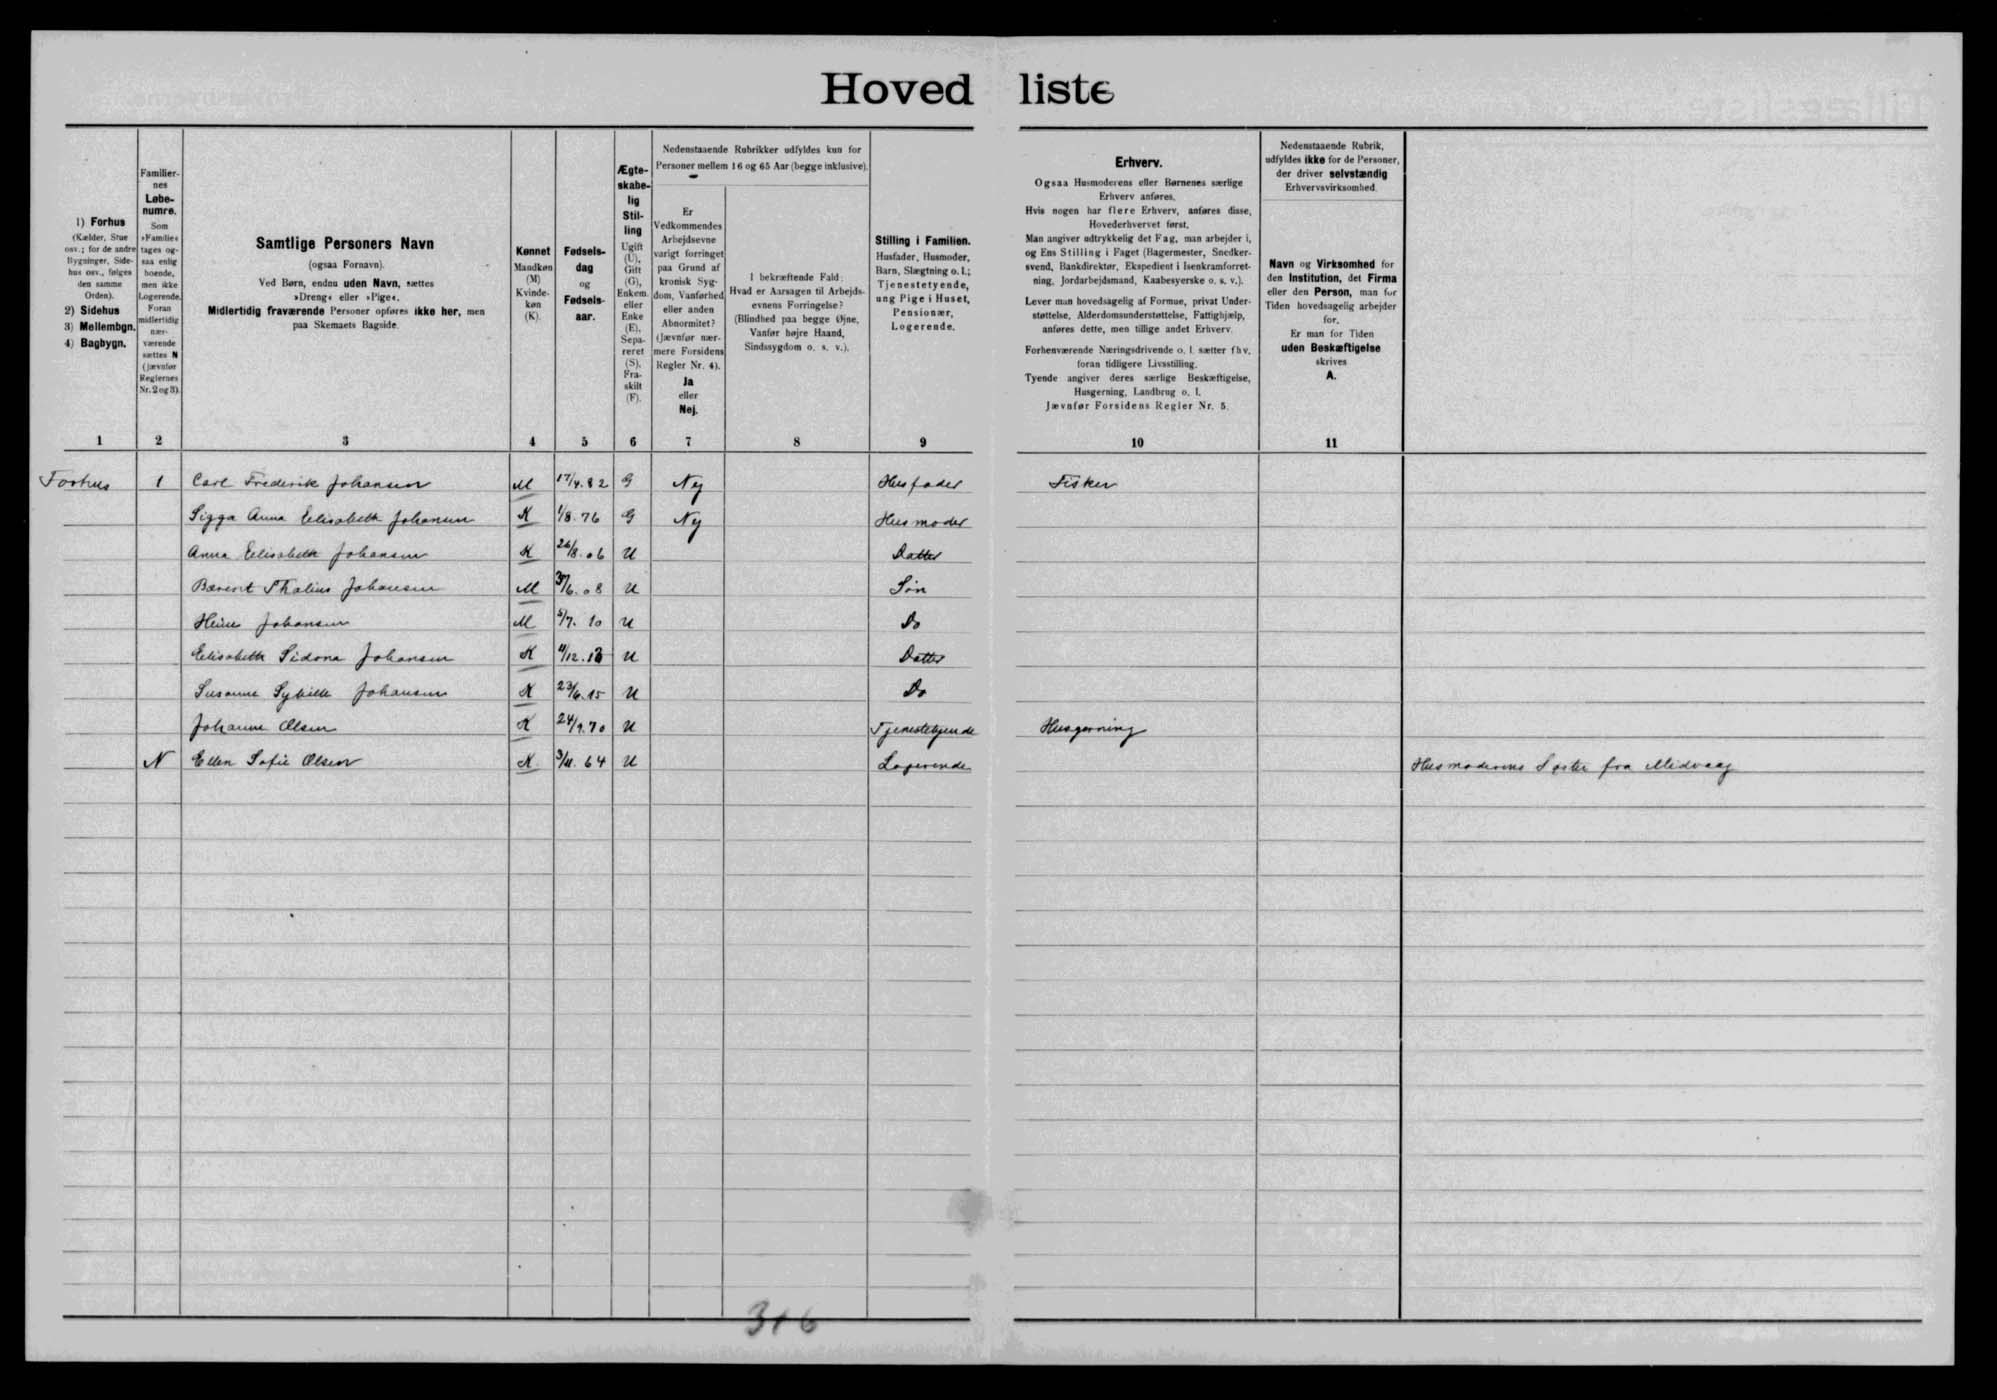 Hoved liste
1) Forhus
(Kælder, Stue
osv.; for de andre
Bygninger, Side-
hus osv., følges
den samme
Orden).
2) Sidehus
3) Mellembgn.
4) Bagbygn.
Familier-
nes
Løbe-
numre.
Som
»Familie«
tages og-
saa enlig
boende,
men ikke
Logerende.
Foran
midlertidig
nær-
værende
sættes N
(jævnfør
Reglernes
Nr. 2 og 3).
Samtlige Personers Navn
(ogsaa Fornavn).
Ved Børn, endnu uden Navn, sættes
»Dreng« eller »Pige«.
Midlertidig fraværende Personer opføres ikke her, men
paa Skemaets Bagside.
Kønnet
Mandkøn
(M)
Kvinde-
køn
(K).
Fødsels-
dag
og
Fødsels-
aar.
Ægte-
skabe-
lig
Stil-
ling
Ugift
(U),
Gift
(G),
Enkem.
eller
Enke
(E),
Sepa-
reret
(S),
Fra-
skilt
(F).
Nedenstaaende Rubrikker udfyldes kun for
Personer mellem 16 og 65 Aar (begge inklusive).
Er
Vedkommendes
Arbejdsevne
varigt forringet
paa Grund af
kronisk Syg-
dom, Vanførhed
eller anden
Abnormitet?
(Jævnfør nær-
mere Forsidens
Regler Nr. 4).
Ja
eller
Nej.
I bekræftende Fald:
Hvad er Aarsagen til Arbejds-
evnens Forringelse?
(Blindhed paa begge Øjne,
Vanfør højre Haand,
Sindssygdom o. s. v.).
Stilling i Familien.
Husfader, Husmoder,
Barn, Slægtning o. l.;
Tjenestetyende,
ung Pige i Huset,
Pensionær,
Logerende.
Erhverv.
Ogsaa Husmoderens eller Børnenes særlige
Erhverv anføres.
Hvis nogen har flere Erhverv, anføres disse,
Hovederhvervet først.
Man angiver udtrykkelig det Fag, man arbejder i,
og Ens Stilling i Faget (Bagermester, Snedker-
svend, Bankdirektør, Ekspedient i Isenkramforret-
ning, Jordarbejdsmand, Kaabesyerske o. s. v.).
Lever man hovedsagelig af Formue, privat Under-
støttelse, Alderdomsunderstøttelse, Fattighjælp,
anføres dette, men tillige andet Erhverv.
Forhenværende Næringsdrivende o. l. sætter fhv.
foran tidligere Livsstilling.
Tyende angiver deres særlige Beskæftigelse,
Husgerning, Landbrug o. l.
Jævnfør Forsidens Regler Nr. 5.
Nedenstaaende Rubrik,
udfyldes ikke for de Personer,
der driver selvstændig
Erhvervsvirksomhed.
Navn og Virksomhed for
den Institution, det Firma
eller den Person, man for
Tiden hovedsagelig arbejder
for.
Er man for Tiden
uden Beskæftigelse
skrives
A.
1 2 3 4 5 6 7 8 9 10 11
Forhus 1 Carl Frederik Johansen M 17/4.82 G Nej Husfader Fisker
Sigga Anna Elisabeth Johansen K 1/8.76 G Nej Husmoder
Anna Elisabeth Johansen K 26/8.06 U Datter
Johansen M /6.08 U Søn
Heine Johansen M 5/7.10 U Do
Elisabeth Sidona Johansen K /12.13 U Datter
Susanne Johansen K 23/6.15 U Do
Johanne Olsen K 24/9.70 U Tjenestetyende Husgerning
N Ellen Sofie Olsen K 3/11.64 U Logerende Husmoderens Søster fra Midvaag
316